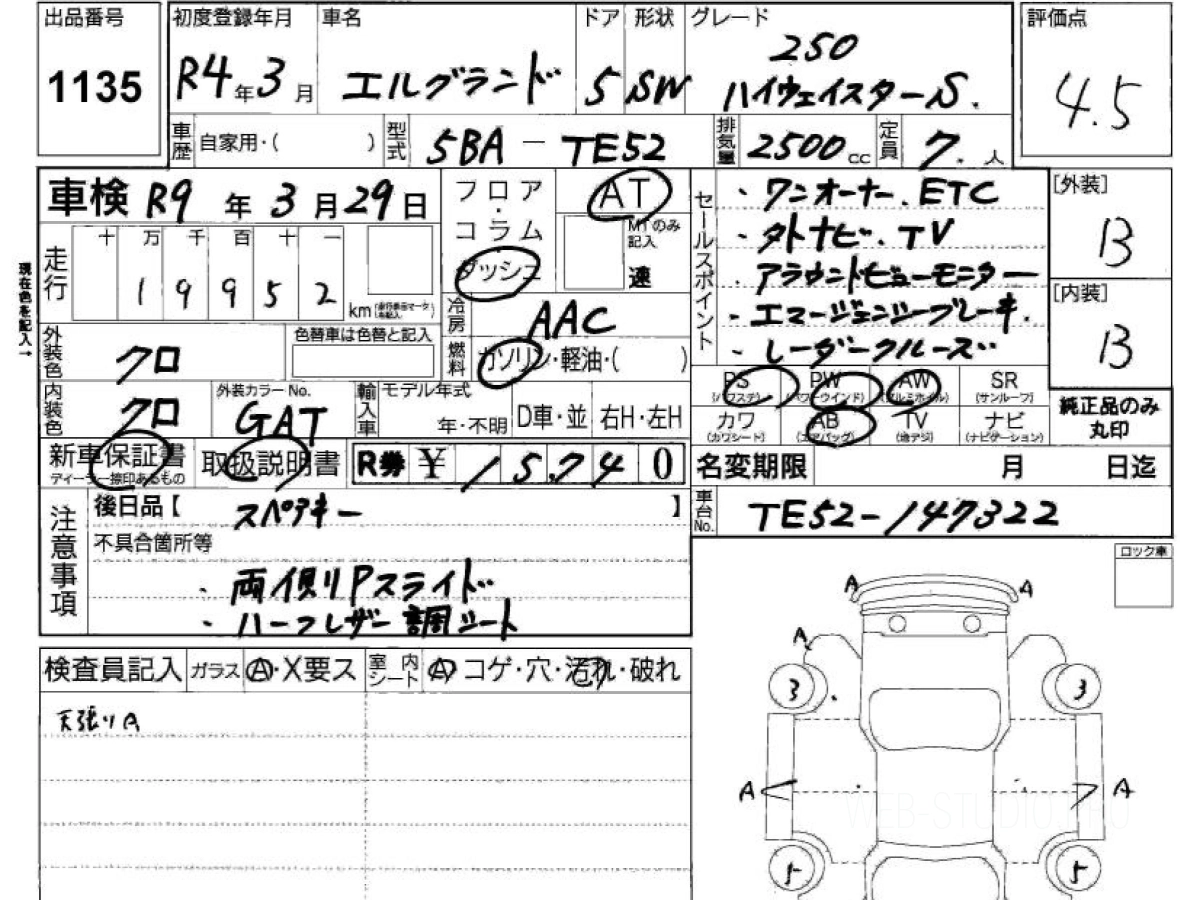 出品番号 初度登録年月 車名 ドア 形状 グレード 評価点
1135 R4年3月 エルグランド 5 SW 250
ハイウェイスターS. 4.5
車歴 自家用・( ) 型式 5BA-TE52 排気量 2500cc 定員 7.人
車検 R9年3月29日
フロア・コラム ダッシュ AT MTのみ記入 速
セールスポイント
・ワンオーナー.ETC
・メーカーナビ.TV
・アラウンドビューモニター
・エマージェンシーブレーキ.
・レーダークルーズ
[外装] B
[内装] B
現在色を記入→
走行 十 万 千 百 十 一
1 9 9 5 2 km
冷房 AAC
燃料 ガソリン・軽油・( )
外装色 クロ 色替車は色替と記入
内装色 クロ 外装カラーNo. GAT 輸入車 モデル年式 年・不明 D車・並 右H・左H
PS (パワステ) PW (パワーウインド) AW (アルミホイル) SR (サンルーフ)
カワ (カワシート) AB (エアバッグ) TV (地デジ) ナビ (ナビゲーション)
純正品のみ丸印
新車保証書 ディーラー捺印あるもの 取扱説明書 R券 ¥ 15,740
名変期限 月 日迄
車台No. TE52-147322
注意事項
後日品【 スペアキー 】
不具合箇所等
・両側Pスライド
・ハーフレザー調シート
ロック車
検査員記入 ガラス A・X要ス 室内シート A・コゲ・穴・汚れ・破れ
天張りA
A A
A
3 3
A A
1 5
WEB-STUDIO.PRO